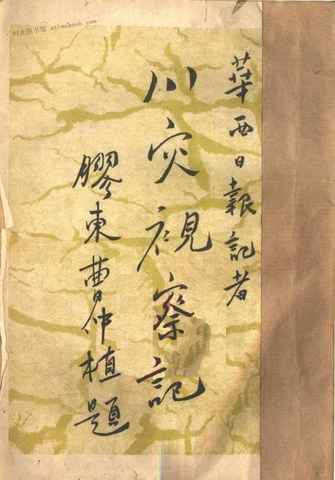 華西日報記者
川灾視察記
膠東曹仲植題